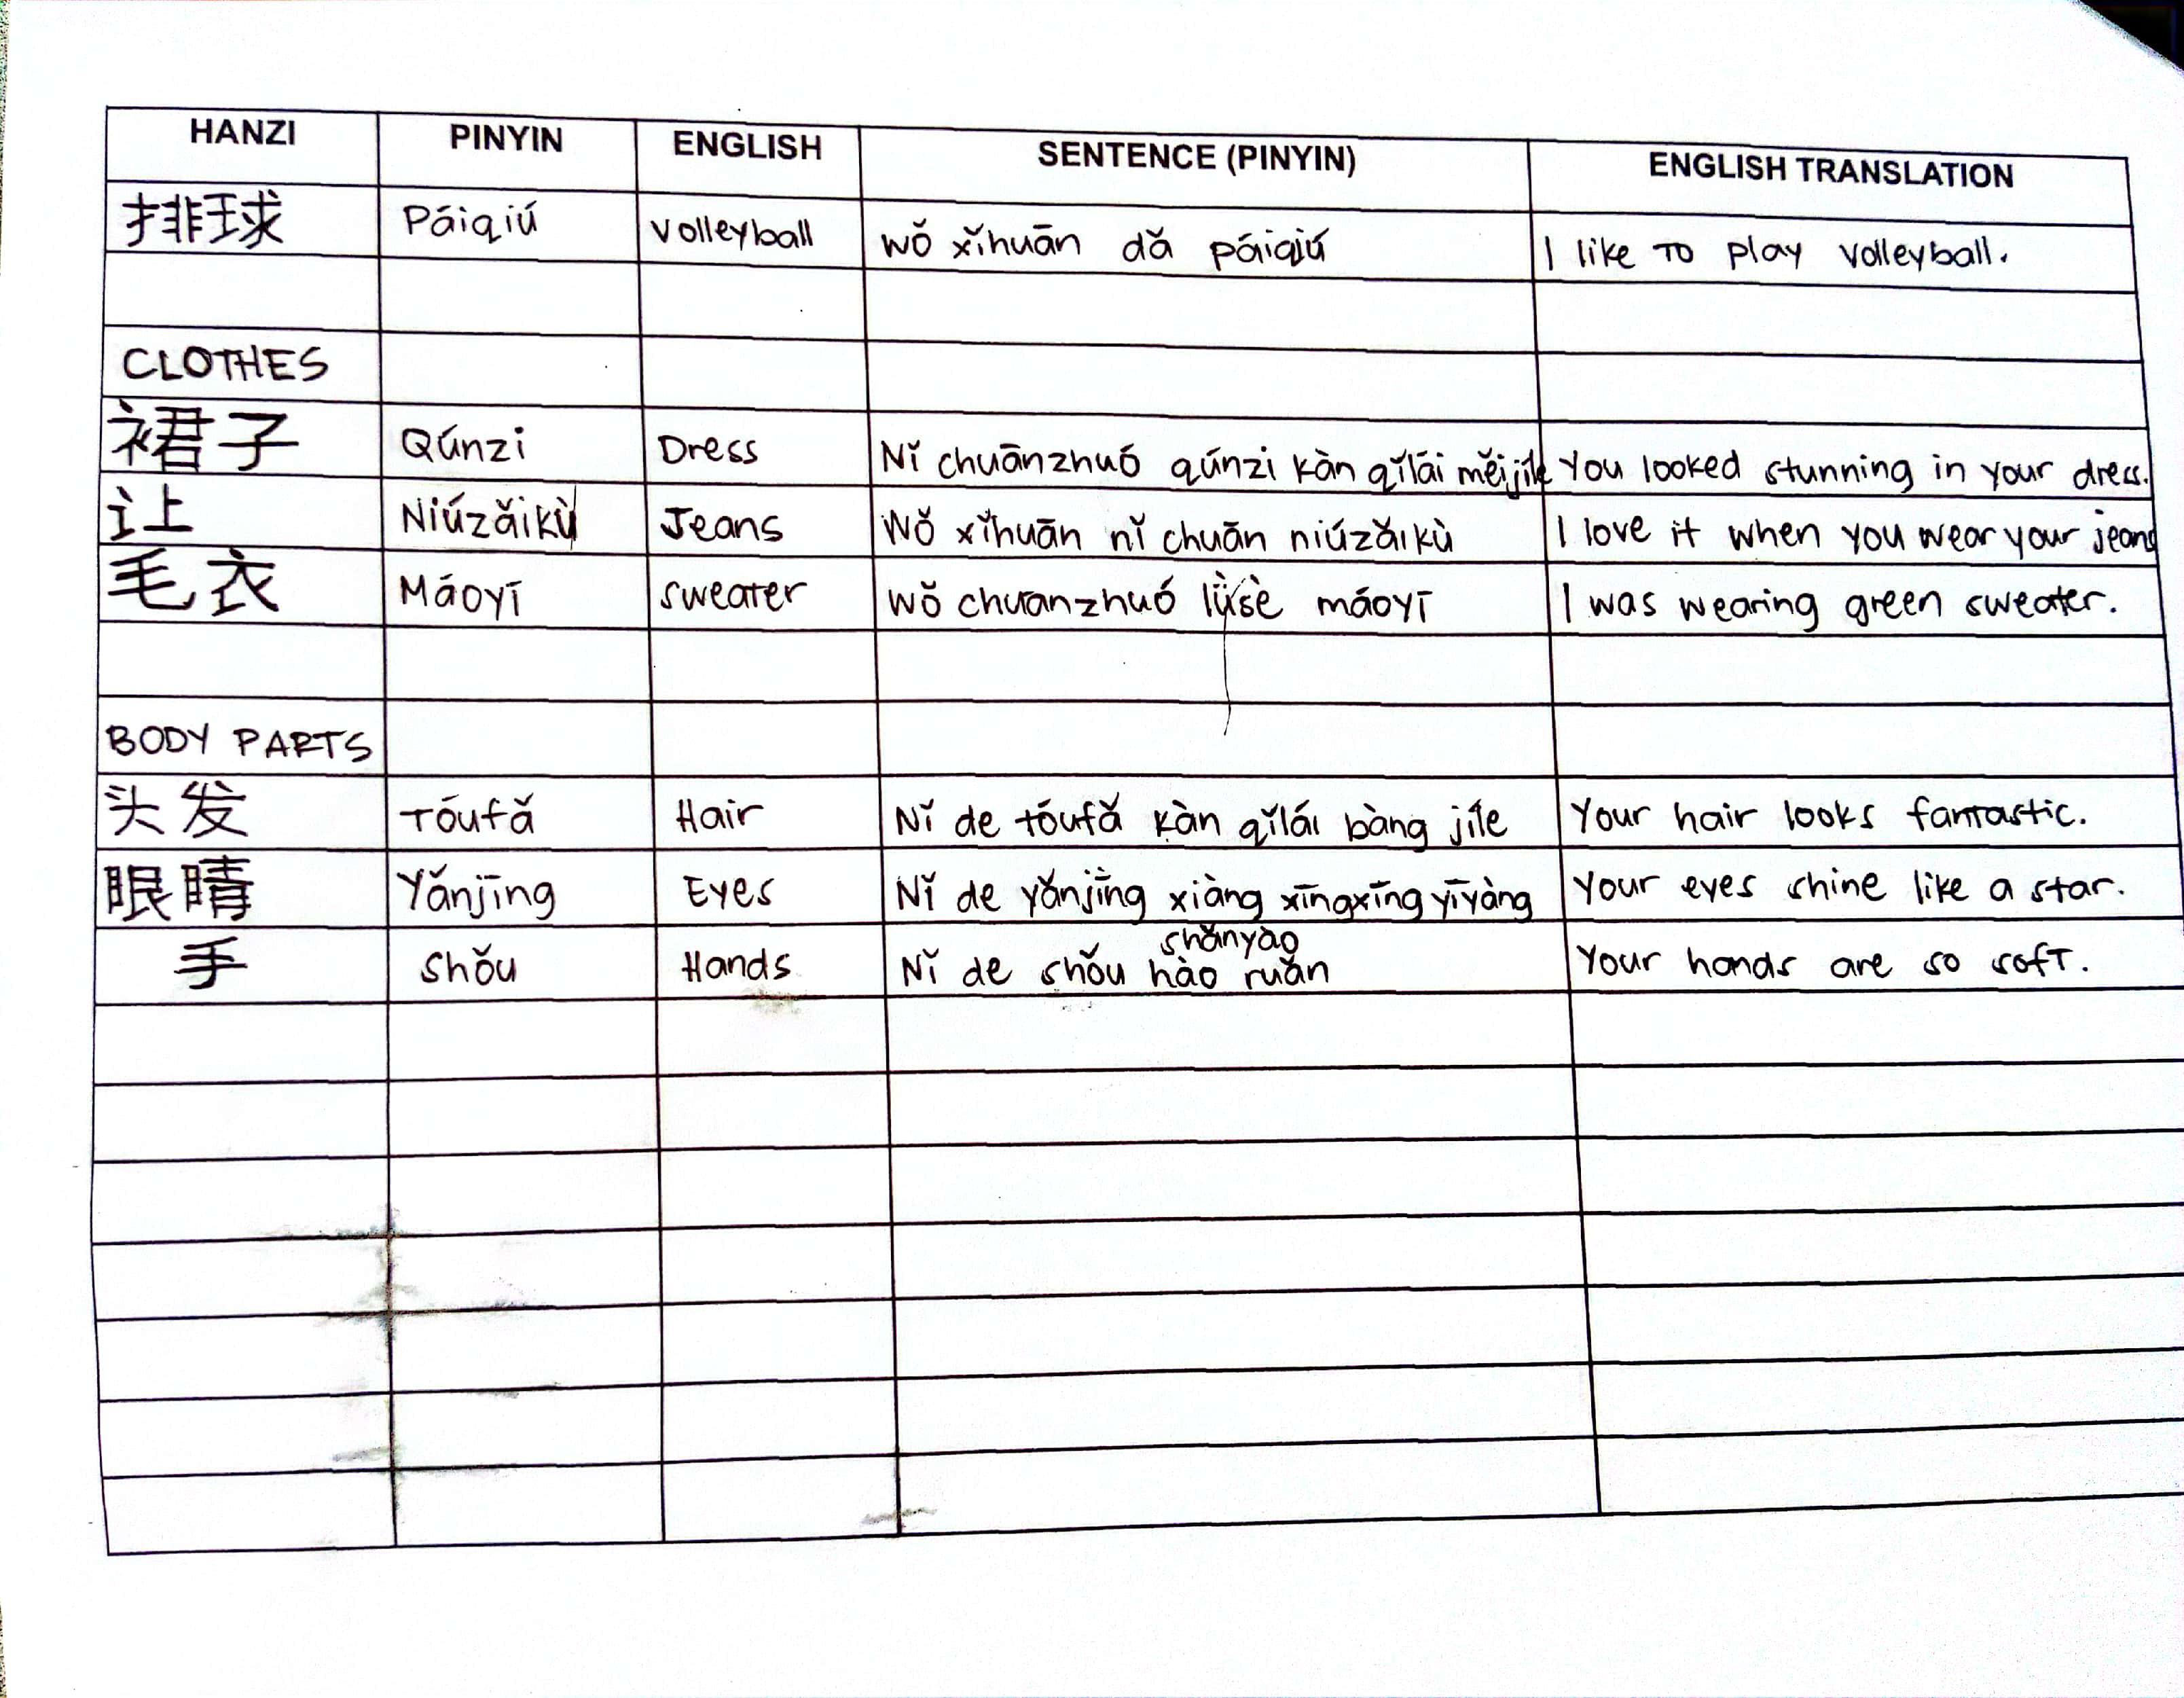 HANZI PINYIN ENGLISH SENTENCE (PINYIN) ENGLISH TRANSLATION
排球 Páiqiú Volleyball Wǒ xǐhuān dǎ páiqiú I like to play volleyball.
CLOTHES
裙子 Qúnzi Dress Nǐ chuānzhuó qúnzi kàn qǐlái měijíle You looked stunning in your dress.
让 Niúzǎikù Jeans Wǒ xǐhuān nǐ chuān niúzǎikù I love it when you wear your jeans
毛衣 Máoyī sweater Wǒ chuanzhuó lǜsè máoyī I was wearing green sweater.
BODY PARTS
头发 Tóufǎ Hair Nǐ de tóufǎ kàn qǐlái bàng jíle Your hair looks fantastic.
眼睛 Yǎnjīng Eyes Nǐ de yǎnjīng xiàng xīngxīng yīyàng Your eyes shine like a star.
shǎnyào
手 Shǒu Hands Nǐ de shǒu hào ruǎn Your hands are so soft.